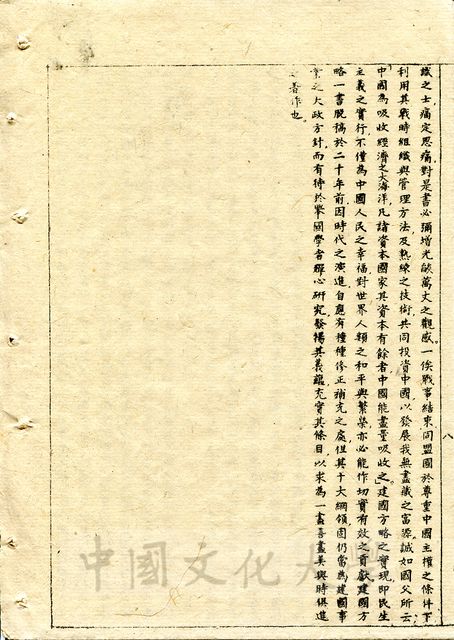 識之士痛定思痛對是書必彌增光燄萬丈之觀感。一俟戰事結束同盟國於尊重中國主權之條件下
利用其戰時組織與管理方法及熟練之技術共同投資中國以發展我無盡藏之富源誠如國父所云
中國為吸收經濟之大海洋凡諸資本國家其資本有餘者中國能盡量吸收之」建國方略之實現即民生
主義之實行不僅為中國人民之幸福對世界人類之和平與繁榮亦必能作切實有效之貢獻建國方
略一書脫稿於二十年前因時代之演進自應有種種修正補充之處但其十大綱領固仍當為建國事
業之大政方針而有待於舉國學者殫心研究發揚其義蘊充實其條目以求為一盡善盡美與時俱進
之著作也。
八
中國文化大學